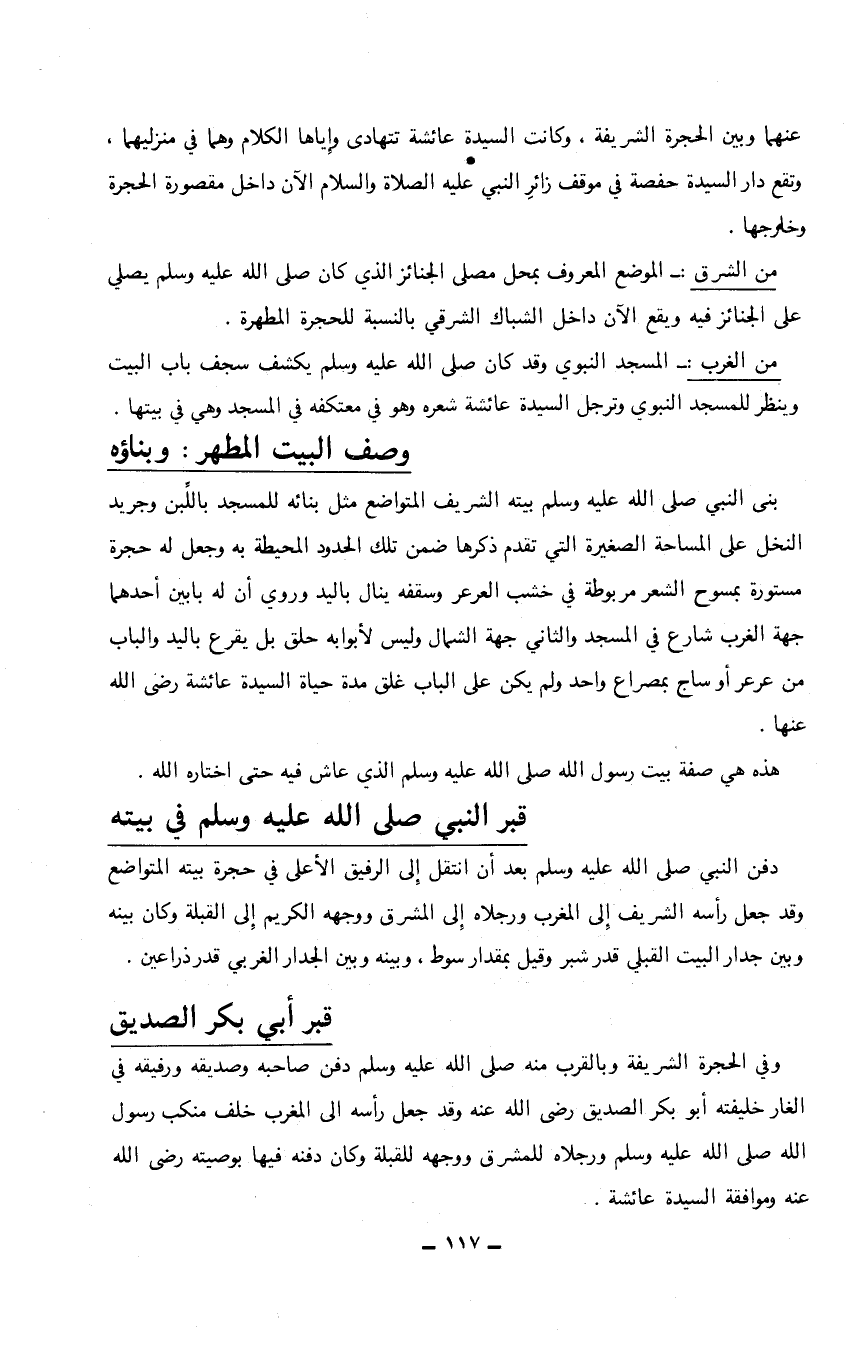 عنهما وبين الحجرة الشريفة ، وكانت السيدة عائشة تتهادى وإياها الكلام وهما في منزليهما ،
وتقع دار السيدة حفصة في موقف زائرِ النبي عليه الصلاة والسلام الآن داخل مقصورة الحجرة
وخارجها .
من الشرق :ـ الموضع المعروف بمحل مصلى الجنائز الذي كان صلى الله عليه وسلم يصلي
على الجنائز فيه ويقع الآن داخل الشباك الشرقي بالنسبة للحجرة المطهرة .
من الغرب :ـ المسجد النبوي وقد كان صلى الله عليه وسلم يكشف سجف باب البيت
وينظر للمسجد النبوي وترجل السيدة عائشة شعره وهو في معتكفه في المسجد وهي في بيتها .
وصف البيت المطهر : وبناؤه
بنى النبي صلى الله عليه وسلم بيته الشريف المتواضع مثل بنائه للمسجد باللَّبن وجريد
النخل على المساحة الصغيرة التي تقدم ذكرها ضمن تلك الحدود المحيطة به وجعل له حجرة
مستورة بمسوح الشعر مربوطة في خشب العرعر وسقفه ينال باليد وروي أن له بابين أحدهما
جهة الغرب شارع في المسجد والثاني جهة الشمال وليس لأبوابه حلق بل يقرع باليد والباب
من عرعر أو ساج بمصراع واحد ولم يكن على الباب غلق مدة حياة السيدة عائشة رضى الله
عنها .
هذه هي صفة بيت رسول الله صلى الله عليه وسلم الذي عاش فيه حتى اختاره الله .
قبر النبي صلى الله عليه وسلم في بيته
دفن النبي صلى الله عليه وسلم بعد أن انتقل إلى الرفيق الأعلى في حجرة بيته المتواضع
وقد جعل رأسه الشريف إلى المغرب ورجلاه إلى المشرق ووجهه الكريم إلى القبلة وكان بينه
وبين جدار البيت القبلي قدر شبر وقيل بمقدار سوط ، وبينه وبين الجدار الغربي قدر ذراعين .
قبر أبي بكر الصديق
وفي الحجرة الشريفة وبالقرب منه صلى الله عليه وسلم دفن صاحبه وصديقه ورفيقه في
الغار خليفته أبو بكر الصديق رضى الله عنه وقد جعل رأسه الى المغرب خلف منكب رسول
الله صلى الله عليه وسلم ورجلاه للمشرق ووجهه للقبلة وكان دفنه فيها بوصيته رضى الله
عنه وموافقة السيدة عائشة .
ـ ١١٧ ـ